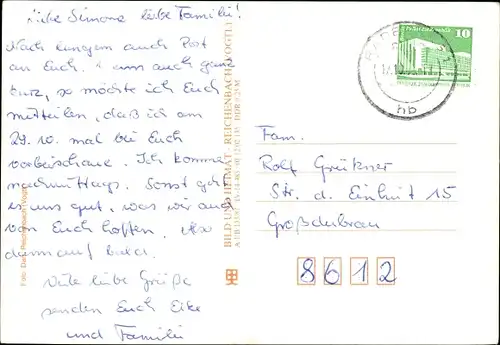 Liebe Simone liebe Familie!
Nach langem auch Post
an Euch. uns auch ganz
kurz, so möchte ich Euch
mitteilen, daß ich am
29.10. mal bei Euch
vorbeischaue. Ich komme
nachmittags. Sonst geht
es uns gut, was wir auch
von Euch hoffen. Also
dann auf bald.
Viele liebe Grüße
senden Euch Eike
und Familie
BILD UND HEIMAT REICHENBACH (VOGTL)
10
hb
Fam.
Rolf Grükner
Str. d. Einheit 15
Großdubrau
8612